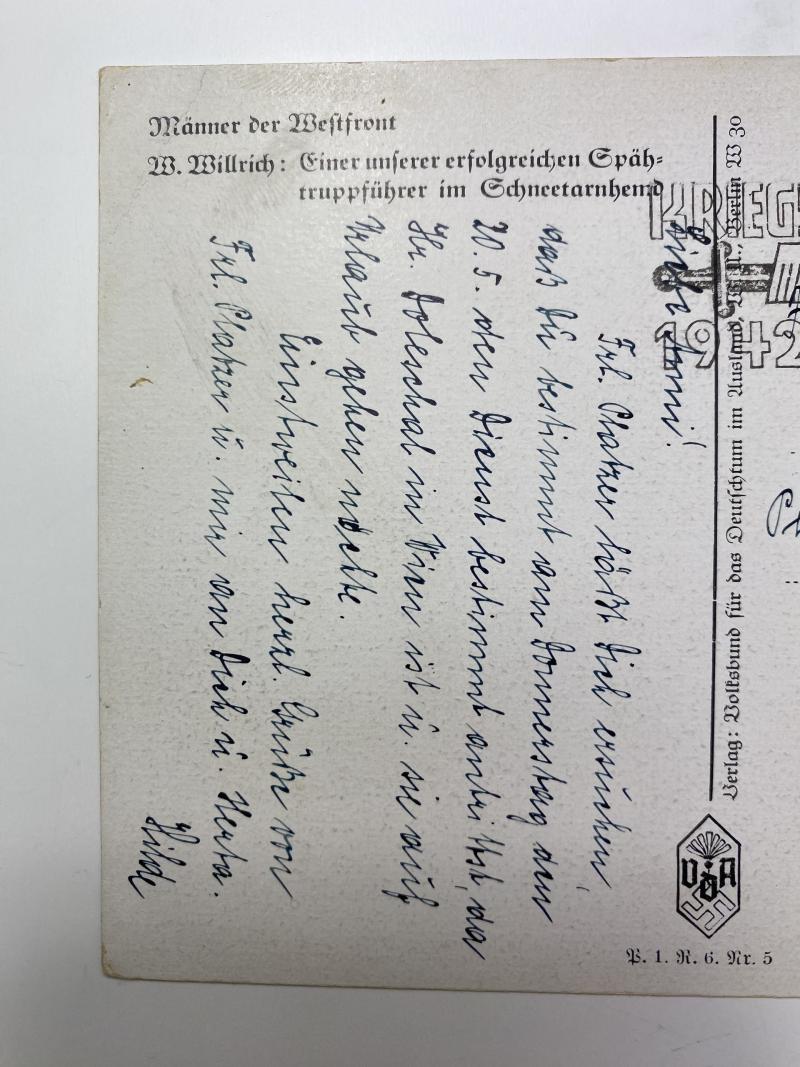 Männer der Westfront
W. Willrich: Einer unserer erfolgreichen Späh-
truppführer im Schneetarnhemd
KRIEGS
1942
Liebe Anni!
Frl. Platzer läßt Dich ersuchen,
daß Du bestimmt am Donnerstag den
20. 5. den Dienst bestimmt antrittst, da
Hr. Doleschal in Wien ist u. sie auf
Urlaub gehen möchte.
Einstweilen herzl. Grüße von
Frl. Platzer u. mir an Dich u. Herta.
Hilde
Verlag: Volksbund für das Deutschtum im Ausland, Berlin W 30
VDA
P. 1. R. 6. Nr. 5